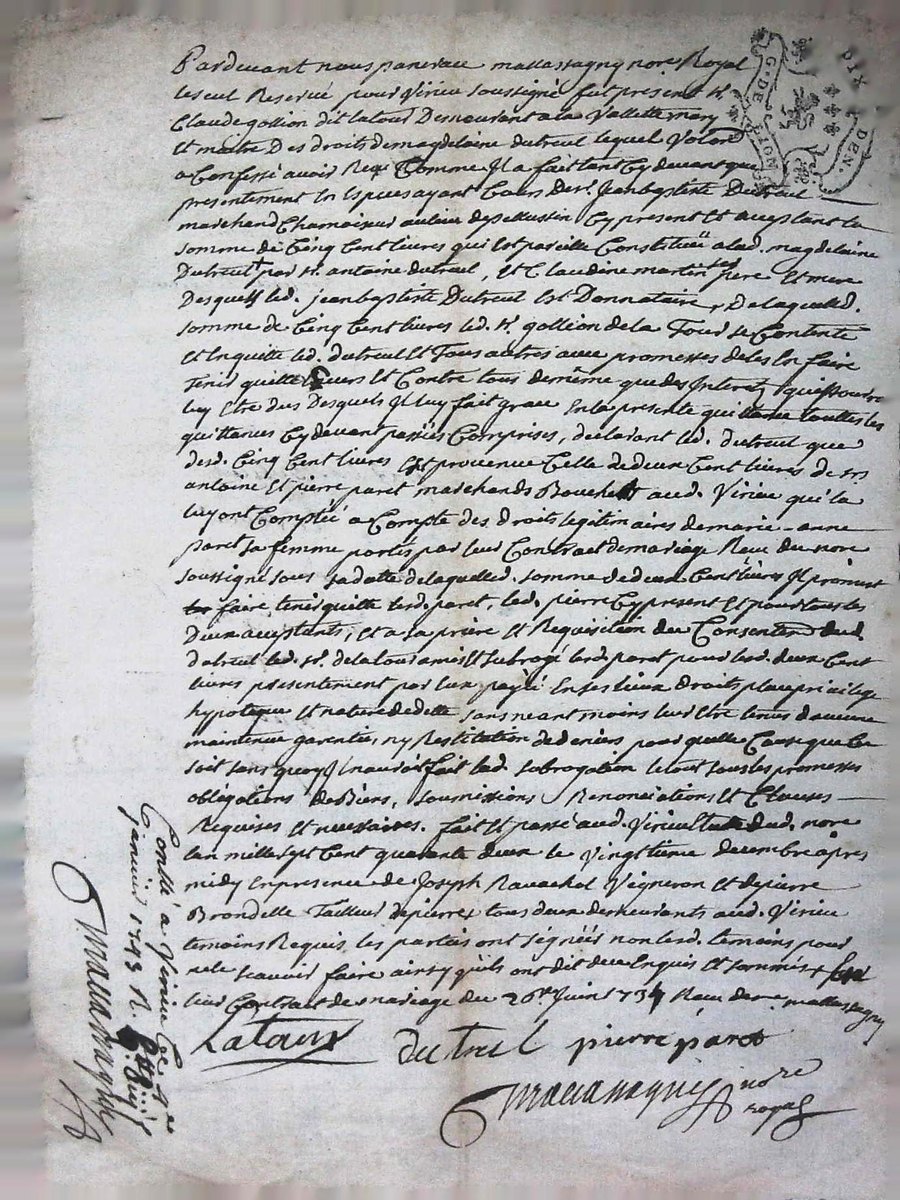 Pardevant nous pancrace mallassagny nore Royal
le seul Reservé pour Virieu soussigné fut présent sr.
Claude gollion dit latour Demeurant a la Vallette mary
Et maitre Des droits de magdelaine dutreul lequel
a Confessé avoir Comme Jl a fait tant Cy devant que
presentement En Espices ayant Cours De sr. Jean baptiste Dutreul
marchand Chamoiseur au lieu de pellussin Cy present Et acceptant la
somme de Cinq Cent livres qui Est pareille Constituée a lad. magdelaine
Dutreul par sr. antoine dutreul, Et Claudine martin ses pere Et mere
Desquels led. jean baptiste Dutreul Est Donnataire, De laquelled.
somme de Cinq Cent livres led. sr. gollion de la Tour se Contente
Et En quitte led. dutreul Et Tous autres avec promesses de les En faire
Tenir quitte Envers Et Contre tous de même que des Interets qui pourroient
luy Etre dus Desquels Jl luy fait grace En la presente quittance touttes les
quittances Cy devant passées Comprises, déclarant led. dutreul que
desd. Cinq Cent livres Est provenue Celle de deux Cent livres de srs
antoine Et pierre paret marchands Bouchers aud. Virieu qu'ils
luy ont Comptée a Compte des droits legitimaires de marie-anne
paret sa femme portés par leur Contract de mariage Reçu du nore
soussigné sous sa datte de laquelled. somme de deux Cent livres Jl promest
faire tenir quitte lesd. paret, led. pierre Cy present Et pour tous les
Deux acceptants, Et a sa prière Et Requisition du Consentemt dud.
dutreul led. sr. de latour a mis Et subrogé lesd. paret pour lesd. deux Cent
livres présentement par Eux payés En ses lieux droits place privilege
hypoteque Et nature de dette sans neant moins leur Etre tenus d'aucune
maintenue garenties ny Restitution de deniers pour quelle Cause que Ce
soit sans quoy Jl n'auroit fait lad. subrogation le tout sous les promesses
obligations de Biens, soumissions Renonciations Et Clauses
Requises Et necessaires. fait Et passé aud. Virieu Etude dud. nore
lan mille sept Cent quarante deux le Vingtieme decembre après
midy En presence de Joseph Ravachol Vigneron Et de pierre
Brondelle Tailleur de pierre tous deux demeurants aud. Virieu
temoins Requis les parties ont signées non lesd. temoins pour
ne le scavoir faire ainsy qu'ils ont dit de ce Enquis Et sommés
leur Contract de mariage du 26e Juin 1734 Reçu de me mallassagny
Latour
dutreul pierre paret
mallassagny nore
royal
Conllé a Virieu Ce
janvier 1743 R.
mallassagny
G. DE NOT
DEN.